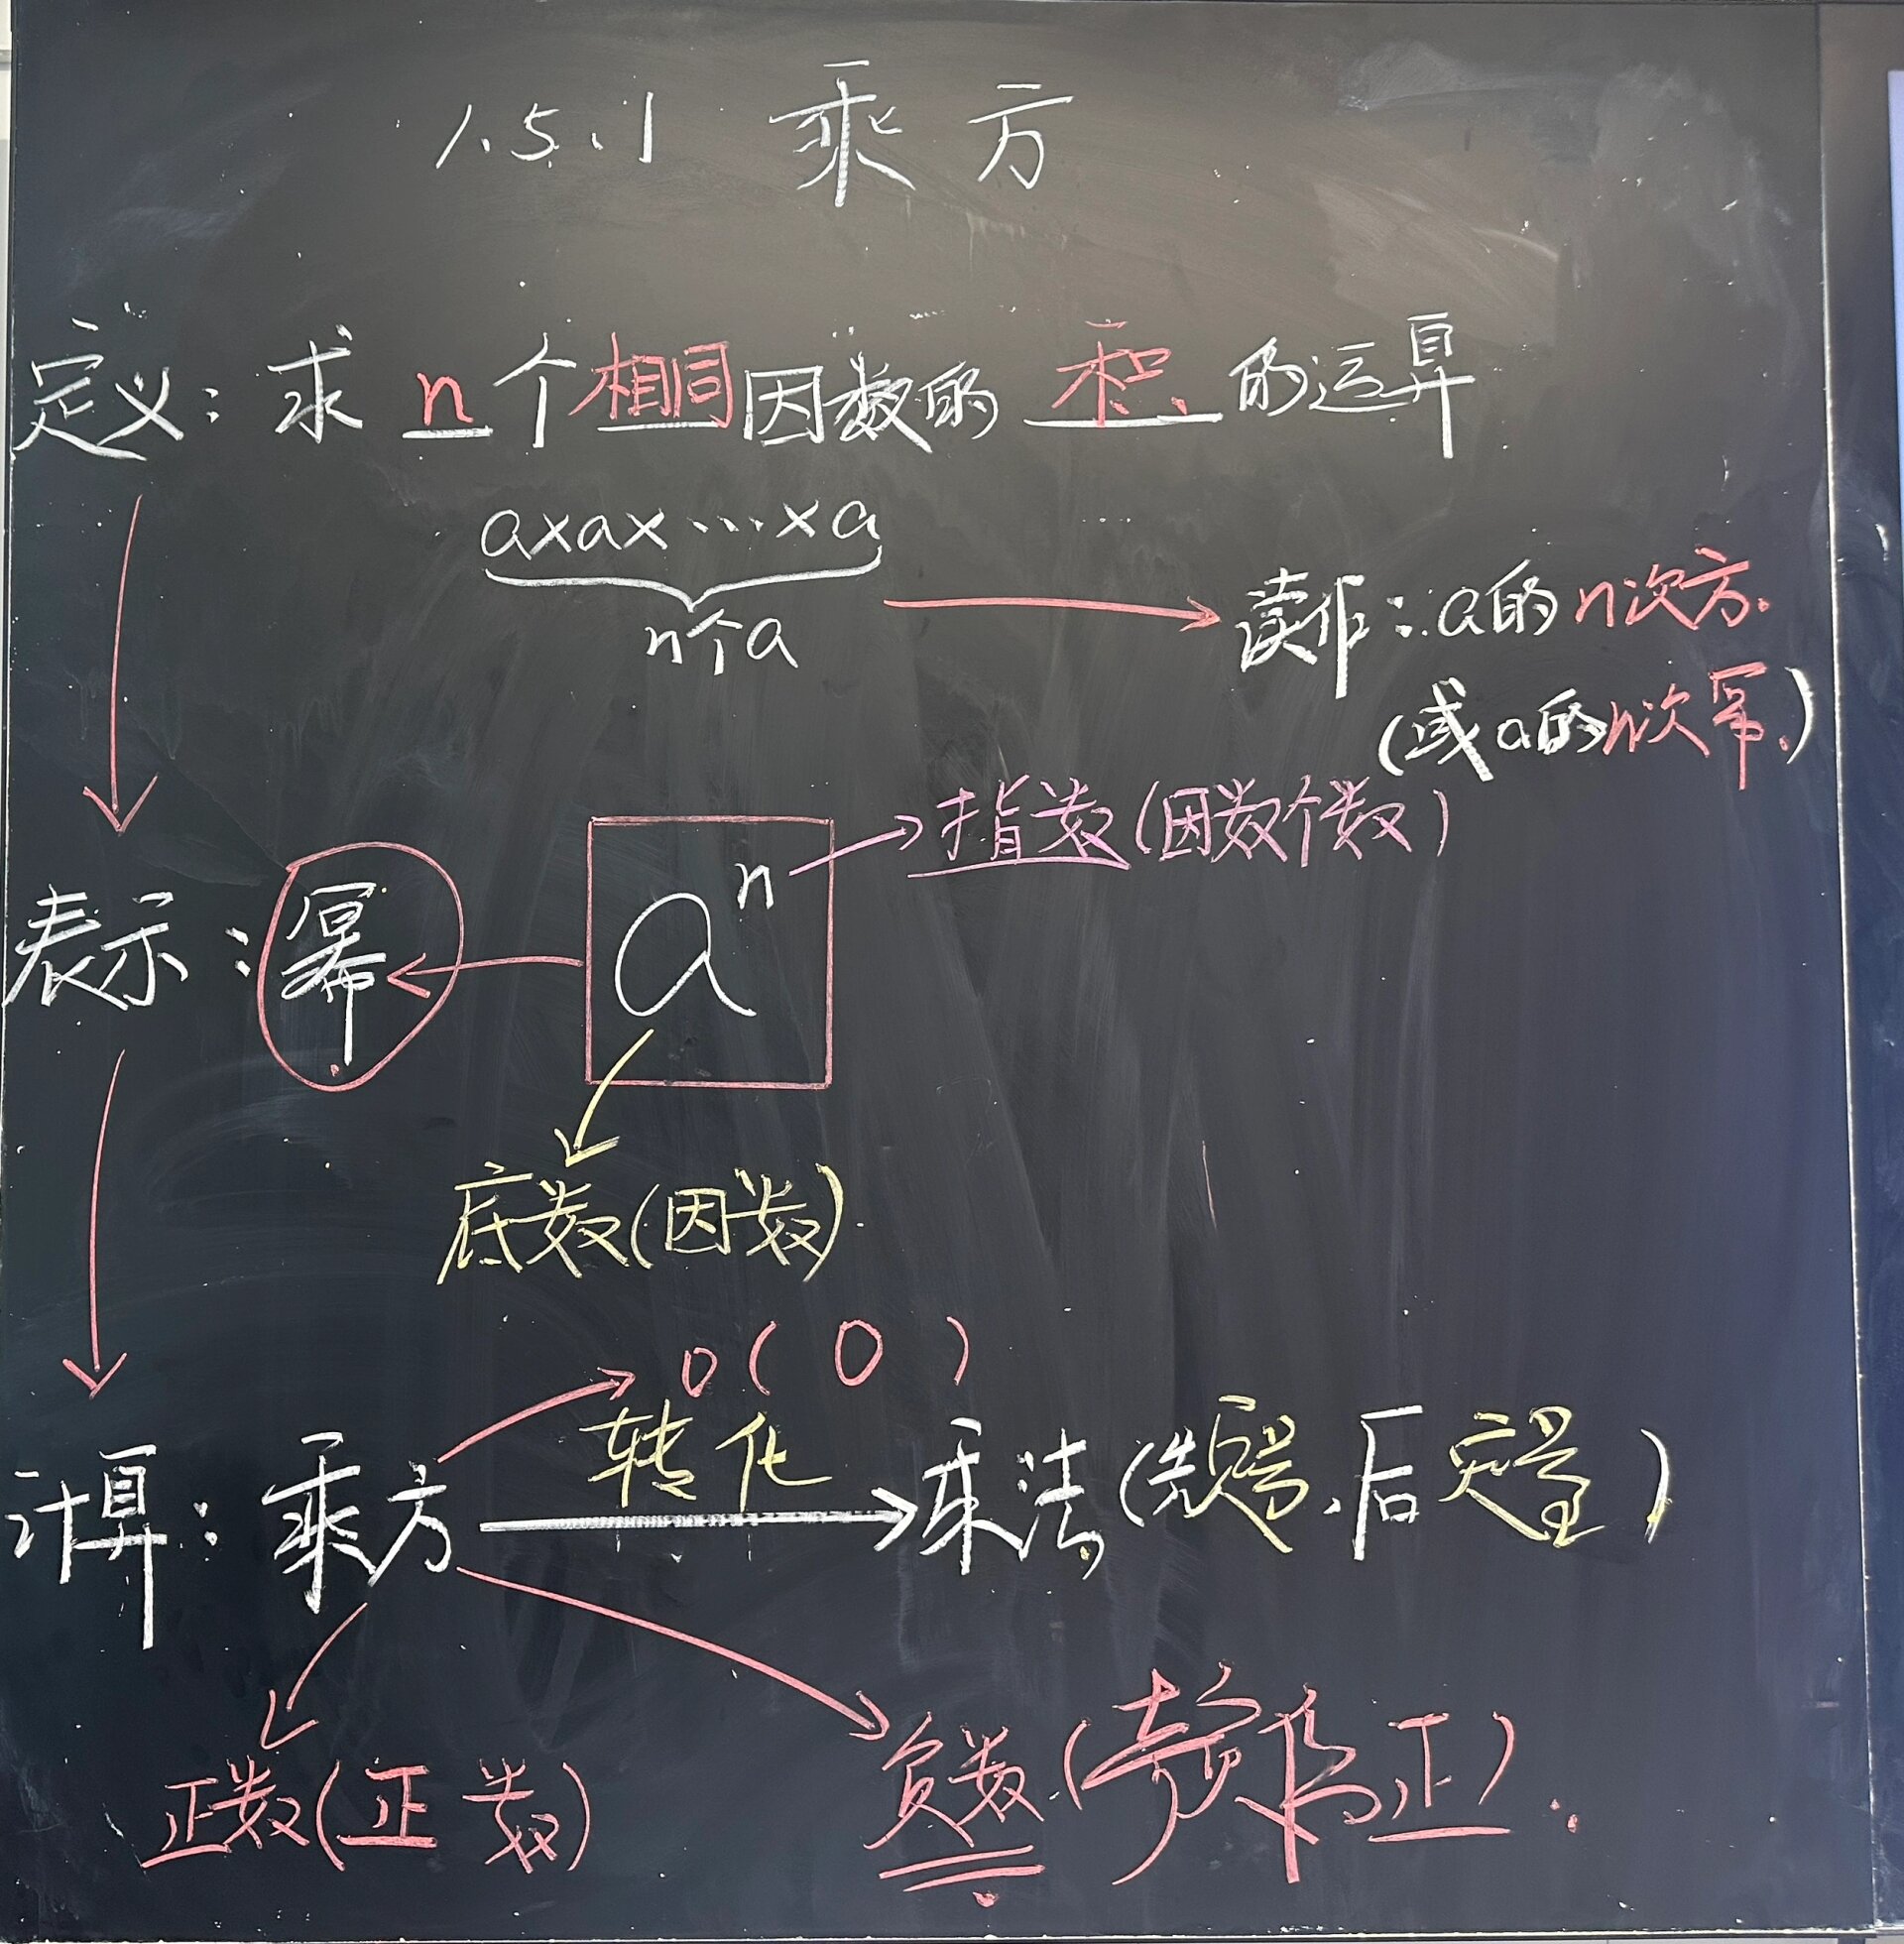 1.5.1 乘方
定义：求 n 个相同因数的 积 的运算
a×a×…×a
n个a
读作：a的n次方.
(或a的n次幂.)
指数(因数个数)
表示：幂
aⁿ
底数(因数).
0( 0 )
转化
计算：乘方
乘法(先定号,后定量)
正数(正数)
负数(奇负偶正).